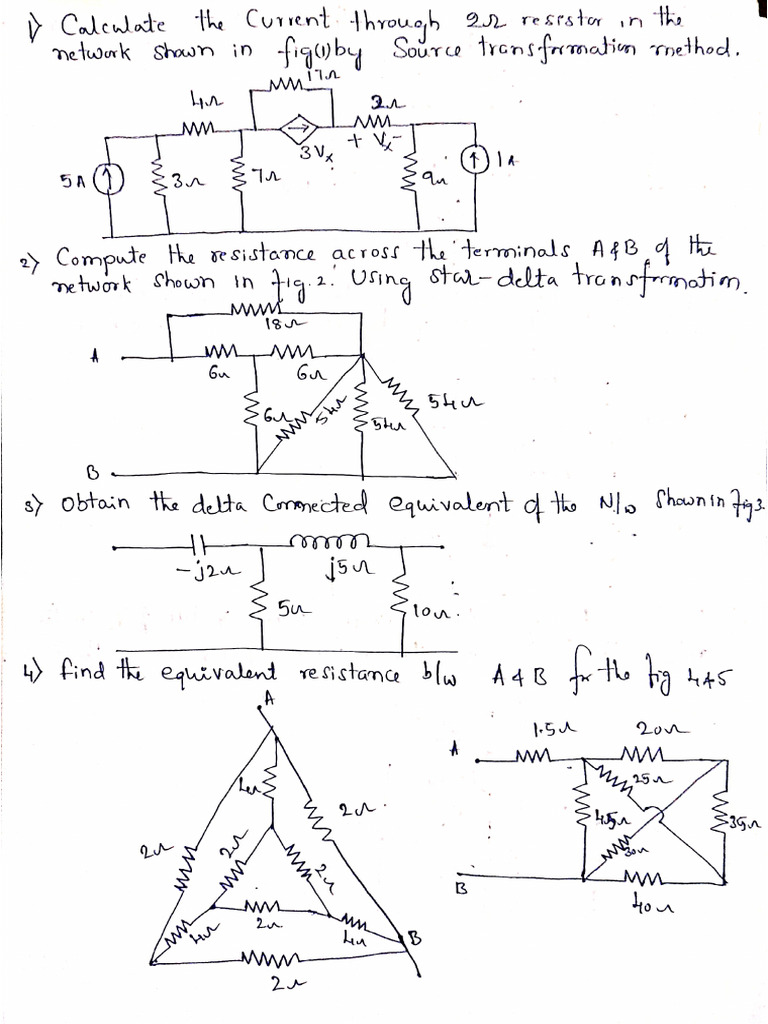 1) Calculate the Current through 2Ω resistor in the
network shown in fig(1) by Source transformation method.
17Ω
4Ω
2Ω
3Vx
+ Vx -
5A
3Ω
7Ω
9Ω
1A
2) Compute the resistance across the terminals A & B of the
network shown in fig.2. Using star-delta transformation.
18Ω
A
6Ω
6Ω
6Ω
54Ω
54Ω
54Ω
B
3) Obtain the delta Connected equivalent of the N/w Shown in fig 3.
-j2Ω
j5Ω
5Ω
10Ω
4) find the equivalent resistance b/w A & B for the fig 4&5
A
4Ω
2Ω
2Ω
2Ω
2Ω
2Ω
4Ω
4Ω
B
2Ω
1.5Ω
20Ω
A
25Ω
45Ω
35Ω
30Ω
B
40Ω